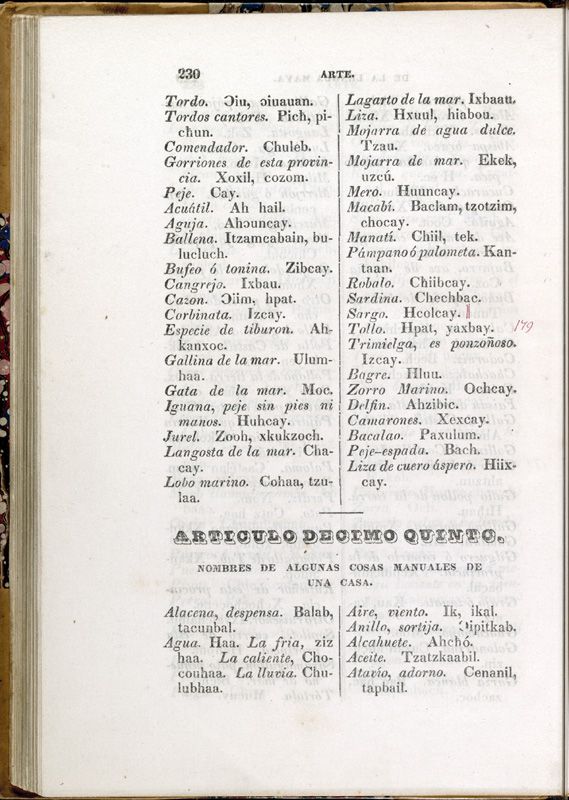 230 ARTE.
Tordo. Ɔiu, ɔiuauan.
Tordos cantores. Pich, pi-
chun.
Comendador. Chuleb.
Gorriones de esta provin-
cia. Xoxil, cozom.
Peje. Cay.
Acuátil. Ah hail.
Aguja. Ahɔuncay.
Ballena. Itzamcabain, bu-
lucluch.
Bufeo ó tonina. Zibcay.
Cangrejo. Ixbau.
Cazon. Ɔiim, hpat.
Corbinata. Izcay.
Especie de tiburon. Ah-
kanxoc.
Gallina de la mar. Ulum-
haa.
Gata de la mar. Moc.
Iguana, peje sin pies ni
manos. Huhcay.
Jurel. Zooh, xkukzoch.
Langosta de la mar. Cha-
cay.
Lobo marino. Cohaa, tzu-
laa.
Lagarto de la mar. Ixbaau.
Liza. Hxuul, hiabou.
Mojarra de agua dulce.
Tzau.
Mojarra de mar. Ekek,
uzcú.
Mero. Huuncay.
Macabí. Baclam, tzotzim,
chocay.
Manatí. Chiil, tek.
Pámpano ó palometa. Kan-
taan.
Robalo. Chiibcay.
Sardina. Chechbac.
Sargo. Hcolcay.
Tollo. Hpat, yaxbay. 179
Trimielga, es ponzoñoso.
Izcay.
Bagre. Hluu.
Zorro Marino. Ochcay.
Delfin. Ahzibic.
Camarones. Xexcay.
Bacalao. Paxulum.
Peje-espada. Bach.
Liza de cuero áspero. Hiix-
cay.
ARTICULO DECIMO QUINTO.
NOMBRES DE ALGUNAS COSAS MANUALES DE
UNA CASA.
Alacena, despensa. Balab,
tacunbal.
Agua. Haa. La fria, ziz
haa. La caliente, Cho-
couhaa. La lluvia. Chu-
lubhaa.
Aire, viento. Ik, ikal.
Anillo, sortija. Ɔipitkab.
Alcahuete. Ahchó.
Aceite. Tzatzkaabil.
Atavío, adorno. Cenanil,
tapbail.